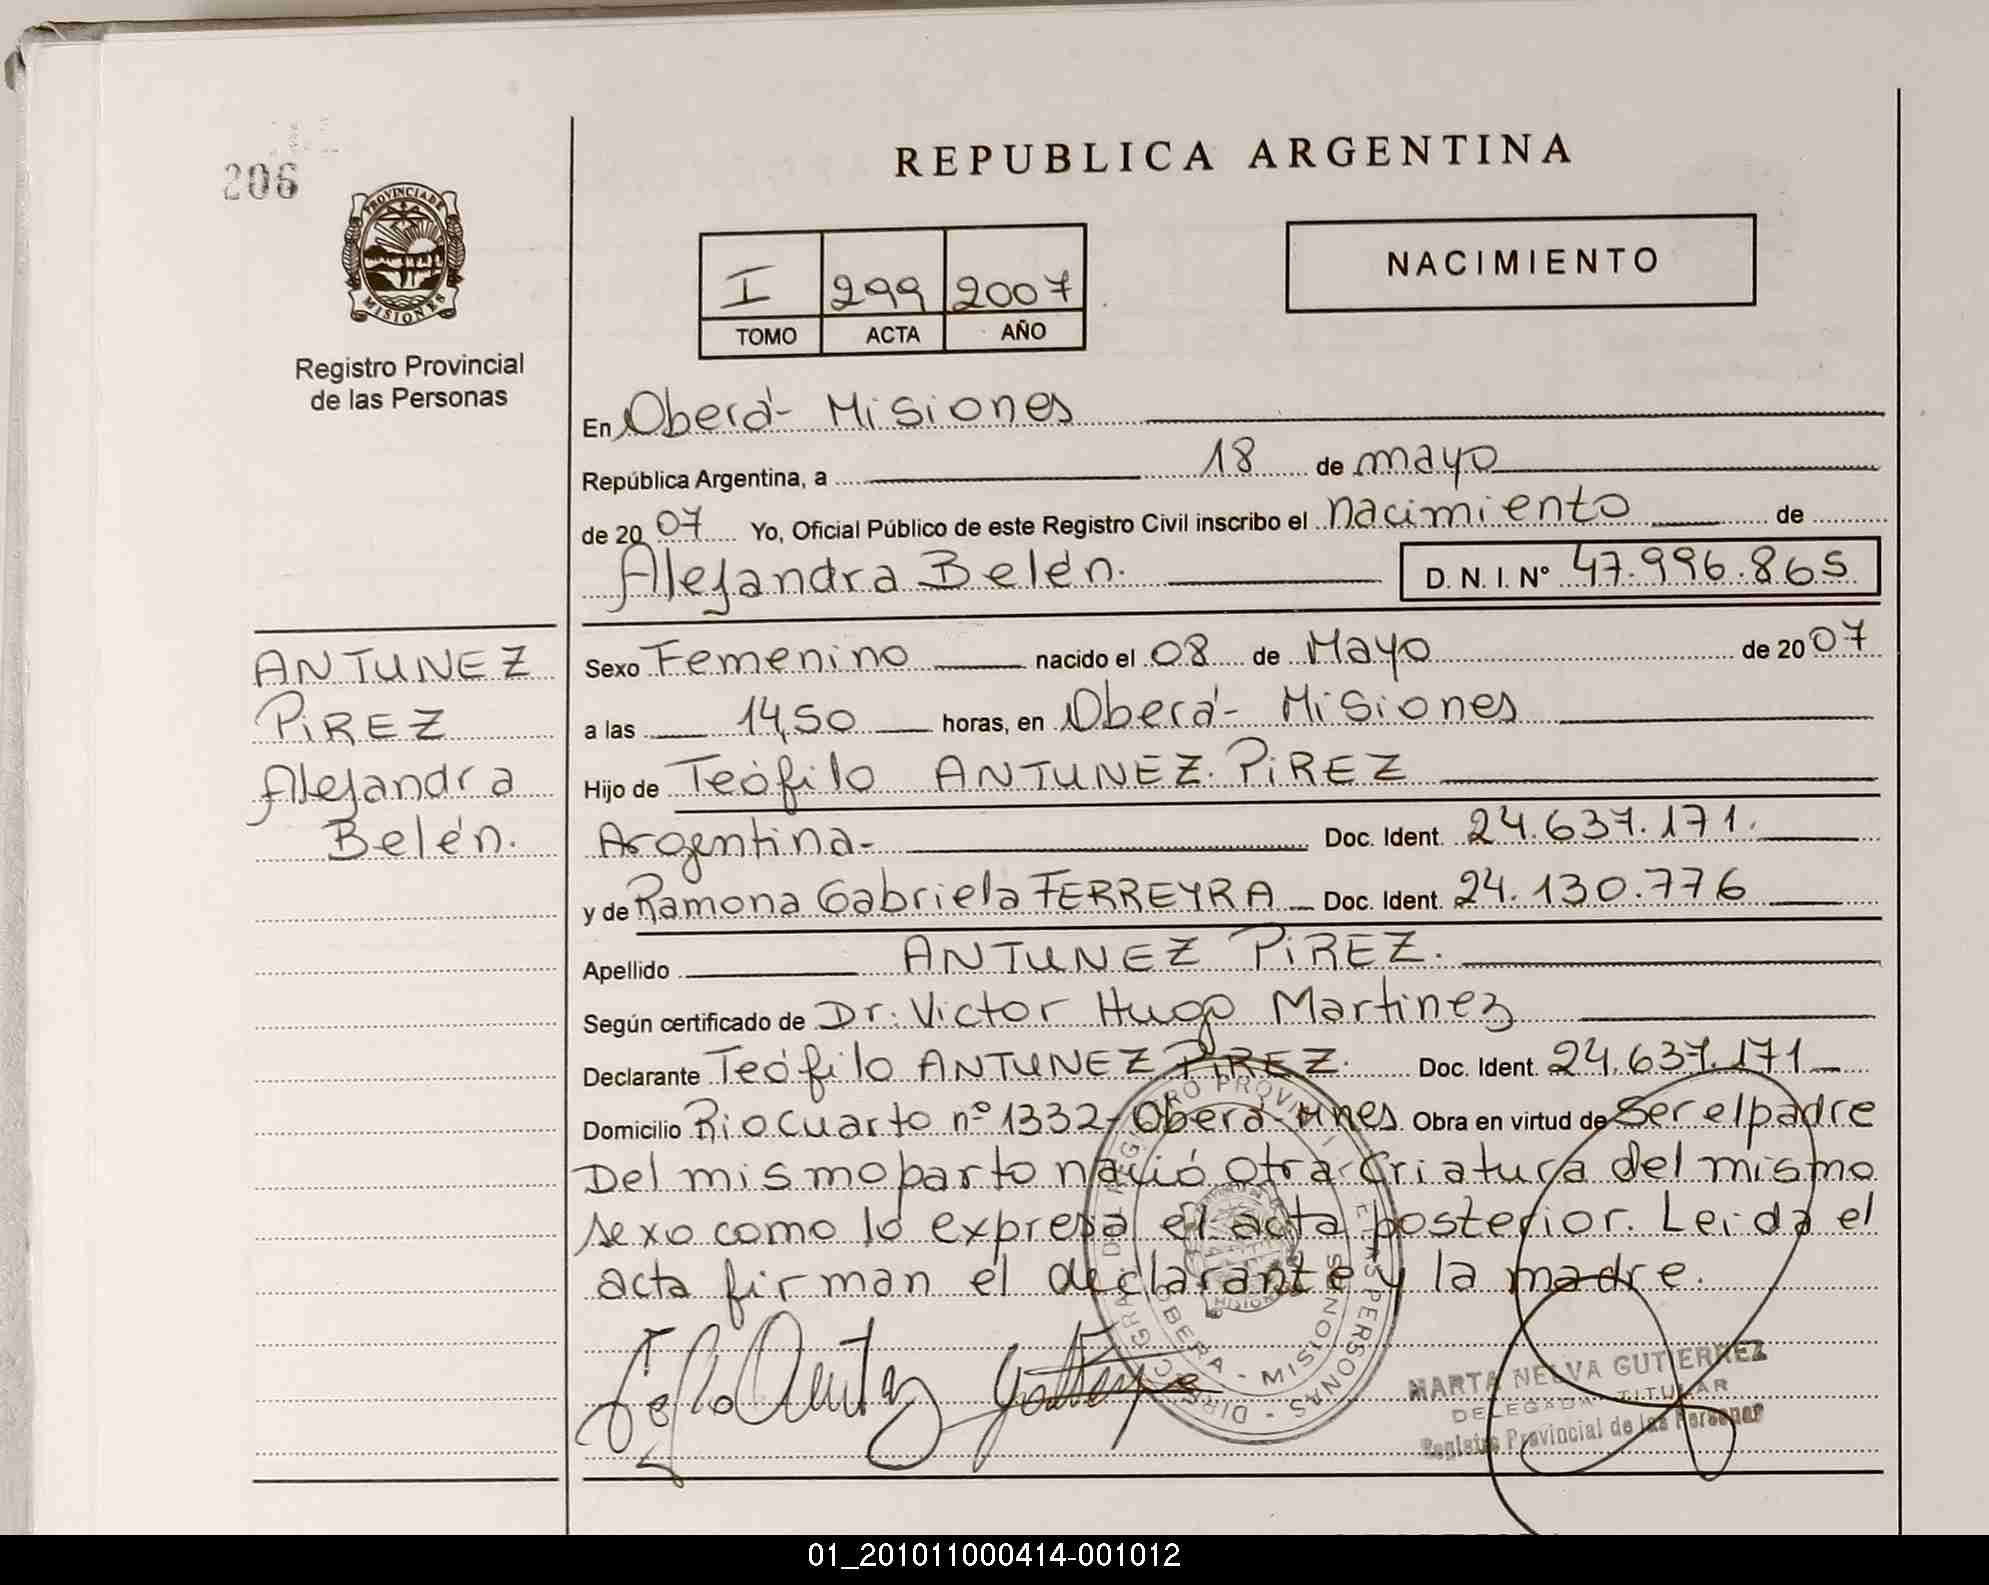 206
PROVINCIA DE
MISIONES
Registro Provincial
de las Personas
REPUBLICA ARGENTINA
I 299 2007
TOMO ACTA AÑO
NACIMIENTO
En Oberá- Misiones
República Argentina, a 18 de mayo
de 20 07 Yo, Oficial Público de este Registro Civil inscribo el nacimiento de
Alejandra Belén. D. N. I. Nº 47.996.865
ANTUNEZ
PIREZ
Alejandra
Belén.
Sexo Femenino nacido el 08 de Mayo de 20 07
a las 14,50 horas, en Oberá- Misiones
Hijo de Teófilo ANTUNEZ PIREZ
Argentina- Doc. Ident. 24.637.171.
y de Ramona Gabriela FERREYRA Doc. Ident. 24.130.776
Apellido ANTUNEZ PIREZ.
Según certificado de Dr. Victor Hugo Martinez
Declarante Teófilo ANTUNEZ PIREZ. Doc. Ident. 24.637.171
Domicilio Rio Cuarto nº 1332- Oberá- Mnes. Obra en virtud de Ser el padre
Del mismo parto nació otra criatura del mismo
sexo como lo expresa el acta posterior. Leida el
acta firman el declarante y la madre.
OBERA - MISIONES
MARTA NELVA GUTIERREZ
DELEGADA TITULAR
Registro Provincial de las Personas
01_201011000414-001012